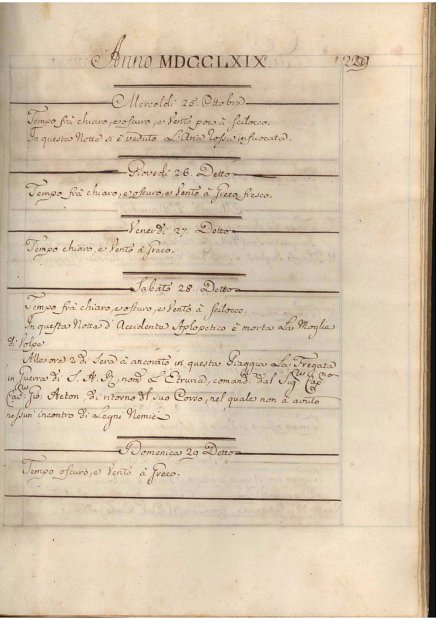 Anno MDCCLXIX. 229
Mercoldi 25. Ottobre
Tempo frà chiaro, e oscuro, e Vento poco à Scilocco.
In questa Notte si è veduto L'Aria Rossa infuocata.
Giovedi 26. Detto
Tempo frà chiaro, e oscuro, e Vento à Greco fresco.
Venerdi 27. Detto
Tempo chiaro, e Vento à Greco.
Sabato 28. Detto
Tempo frà chiaro, e oscuro, e Vento à Scilocco.
In questa Notte d'Accidente Aplopetico è morta La Moglie
di Volpe.
All'esore 2 di Sera à ancorato in questa Piaggia La Fregata
in Guerra di S. A. R. nom.ta L'Etruria, comand. dal Sig.
Gio: Acton, di ritorno dal suo Corso, nel quale non à avuto
nessun incontro di Legni Nemici
Domenica 29 Detto
Tempo oscuro, e Vento à Greco.